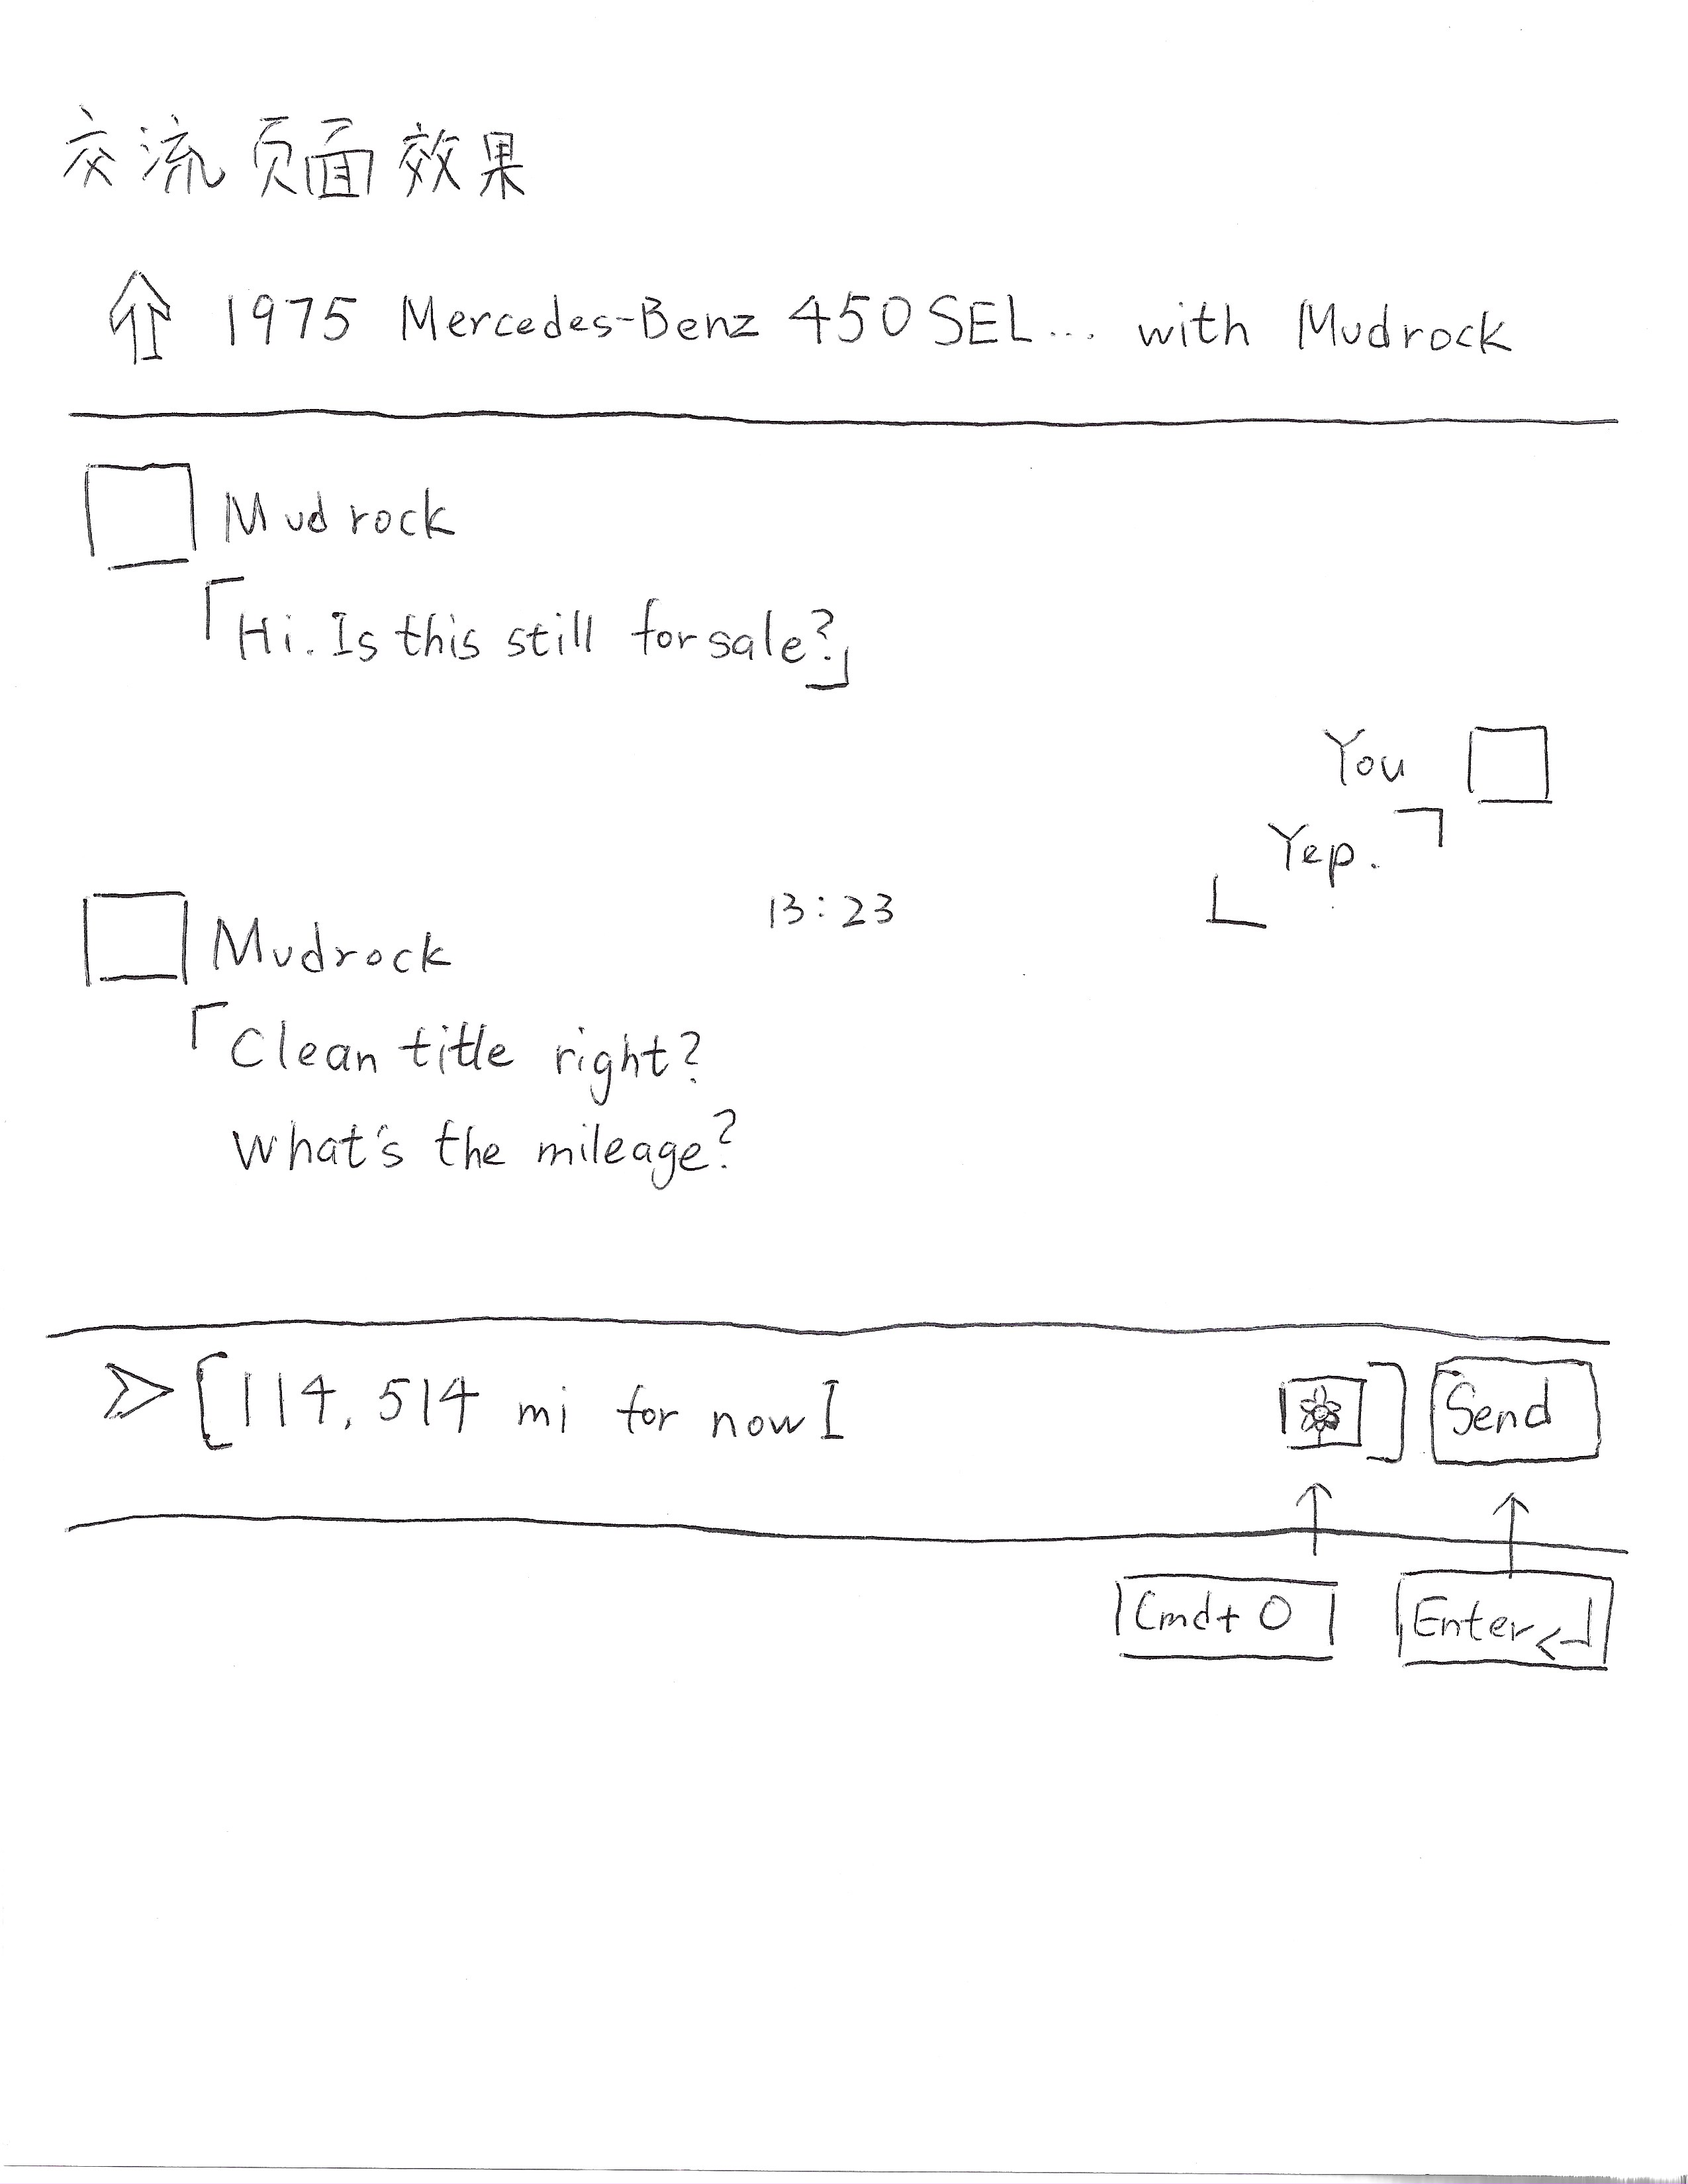 交流页面效果
1975 Mercedes-Benz 450SEL... with Mudrock
Mudrock
「Hi. Is this still for sale?」
You
Yep.
13:23
Mudrock
「Clean title right?
What's the mileage?
[114,514 mi for now ] Send
Cmd+O Enter